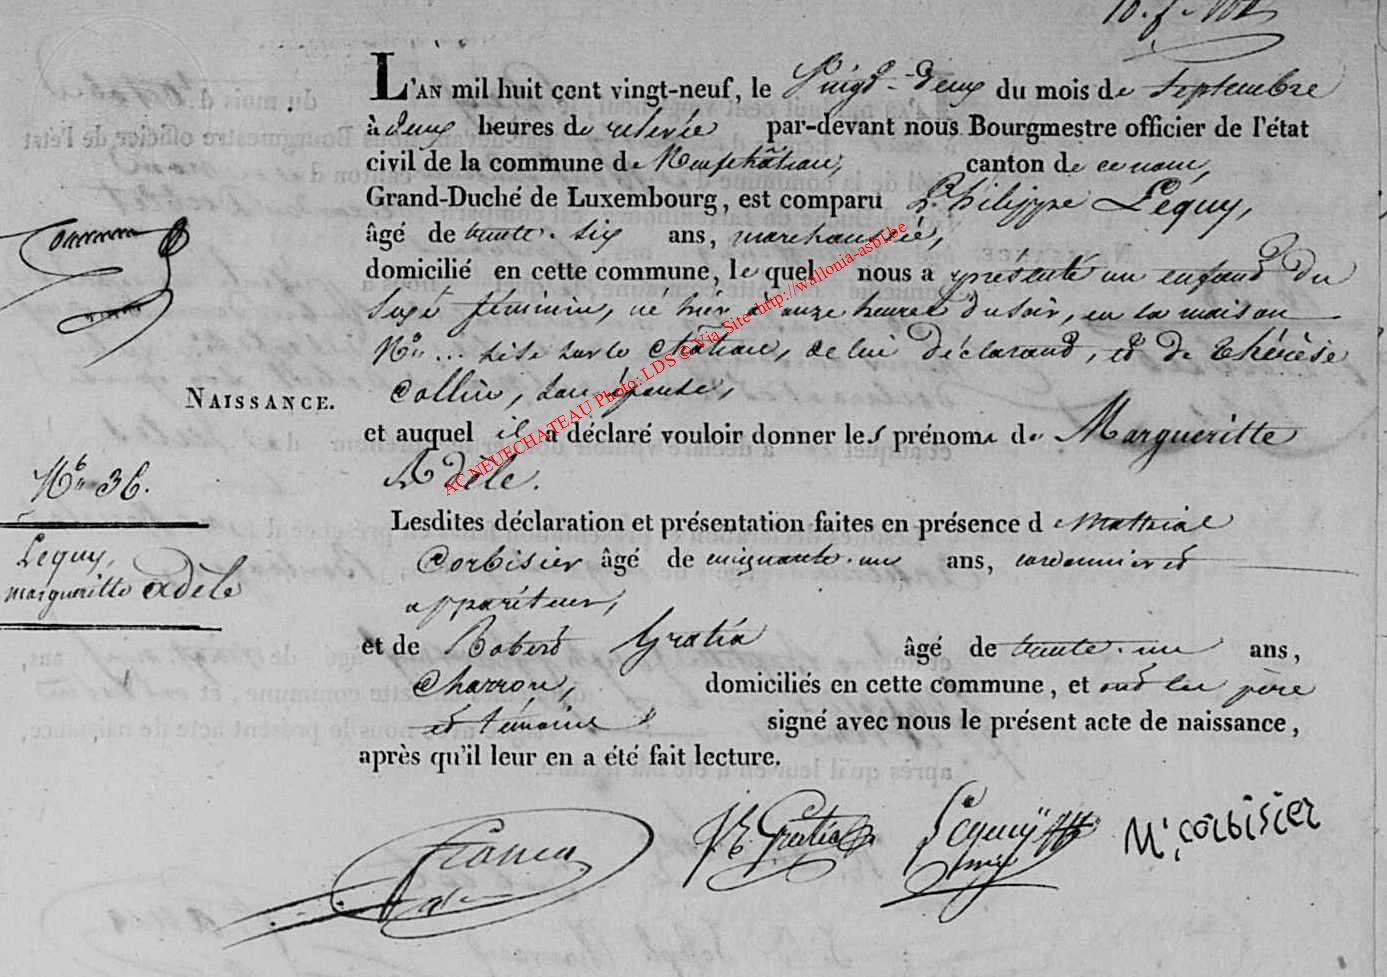 L'AN mil huit cent vingt-neuf, le Vingt-deux du mois de Septembre
à deux heures de relevée par-devant nous Bourgmestre officier de l'état
civil de la commune de Neufchâteau, canton de ce nom,
Grand-Duché de Luxembourg, est comparu Philippe Lequy,
âgé de trente-six ans, marechaussée,
domicilié en cette commune, le quel nous a présenté un enfant du
Sexe féminin, né hier à onze heures du soir, en la maison
N° ... sise sur le Château, de lui déclarant, et de Thérèse
Collin, son épouse,
NAISSANCE.
et auquel il a déclaré vouloir donner les prénoms de Margueritte
Adèle.
N° 36.
Lequy,
margueritte adèle
Lesdites déclaration et présentation faites en présence de Mathias
Corbisier âgé de cinquante-un ans, cordonnier et
appariteur,
et de Robert Gratia âgé de trente-un ans,
Charron, domiciliés en cette commune, et ont les père
et témoins signé avec nous le présent acte de naissance,
après qu'il leur en a été fait lecture.
Gratia Lequÿ M: corbisier
AC NEUFCHATEAU Photo: LDS © Via Site http://wallonia-asbl.be